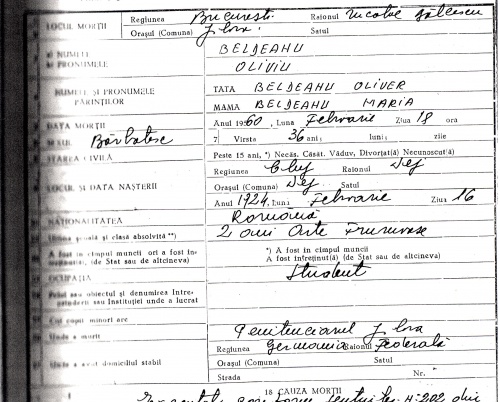 LOCUL MORȚII Regiunea București Raionul Nicolae Bălcescu
Orașul (Comuna) Jilava Satul
a) NUMELE BELDEANU
b) PRONUMELE OLIVIU
NUMELE ȘI PRONUMELE PĂRINȚILOR TATA BELDEANU OLIVER
MAMA BELDEANU MARIA
DATA MORȚII Anul 1960, Luna Februarie Ziua 18 ora
SEXUL Bărbătesc 7 Vîrsta 36 ani, luni, zile
STAREA CIVILĂ Peste 15 ani, *) Necăs. Căsăt. Văduv, Divorțat(ă) Necunoscut(ă)
LOCUL ȘI DATA NAȘTERII Regiunea Cluj Raionul Dej
Orașul (Comuna) Dej Satul
Anul 1924, Luna Februarie Ziua 16
NAȚIONALITATEA Română
școală și clasă absolvită **) 2 ani Arte Frumoase
A fost în cîmpul muncii ori a fost în- (de Stat sau de altcineva) *) A fost în cîmpul muncii
A fost întreținut(ă) (de Stat sau de altcineva)
OCUPAȚIA Student
sau obiectul și denumirea Între-
prinderii sau Instituției unde a lucrat
Cîți copii minori are
Unde a murit Penitenciarul Jilava
Unde a avut domiciliul stabil Regiunea Germania Raionul Federală
Orașul (Comuna) Satul
Strada Nr.
18 CAUZA MORȚII